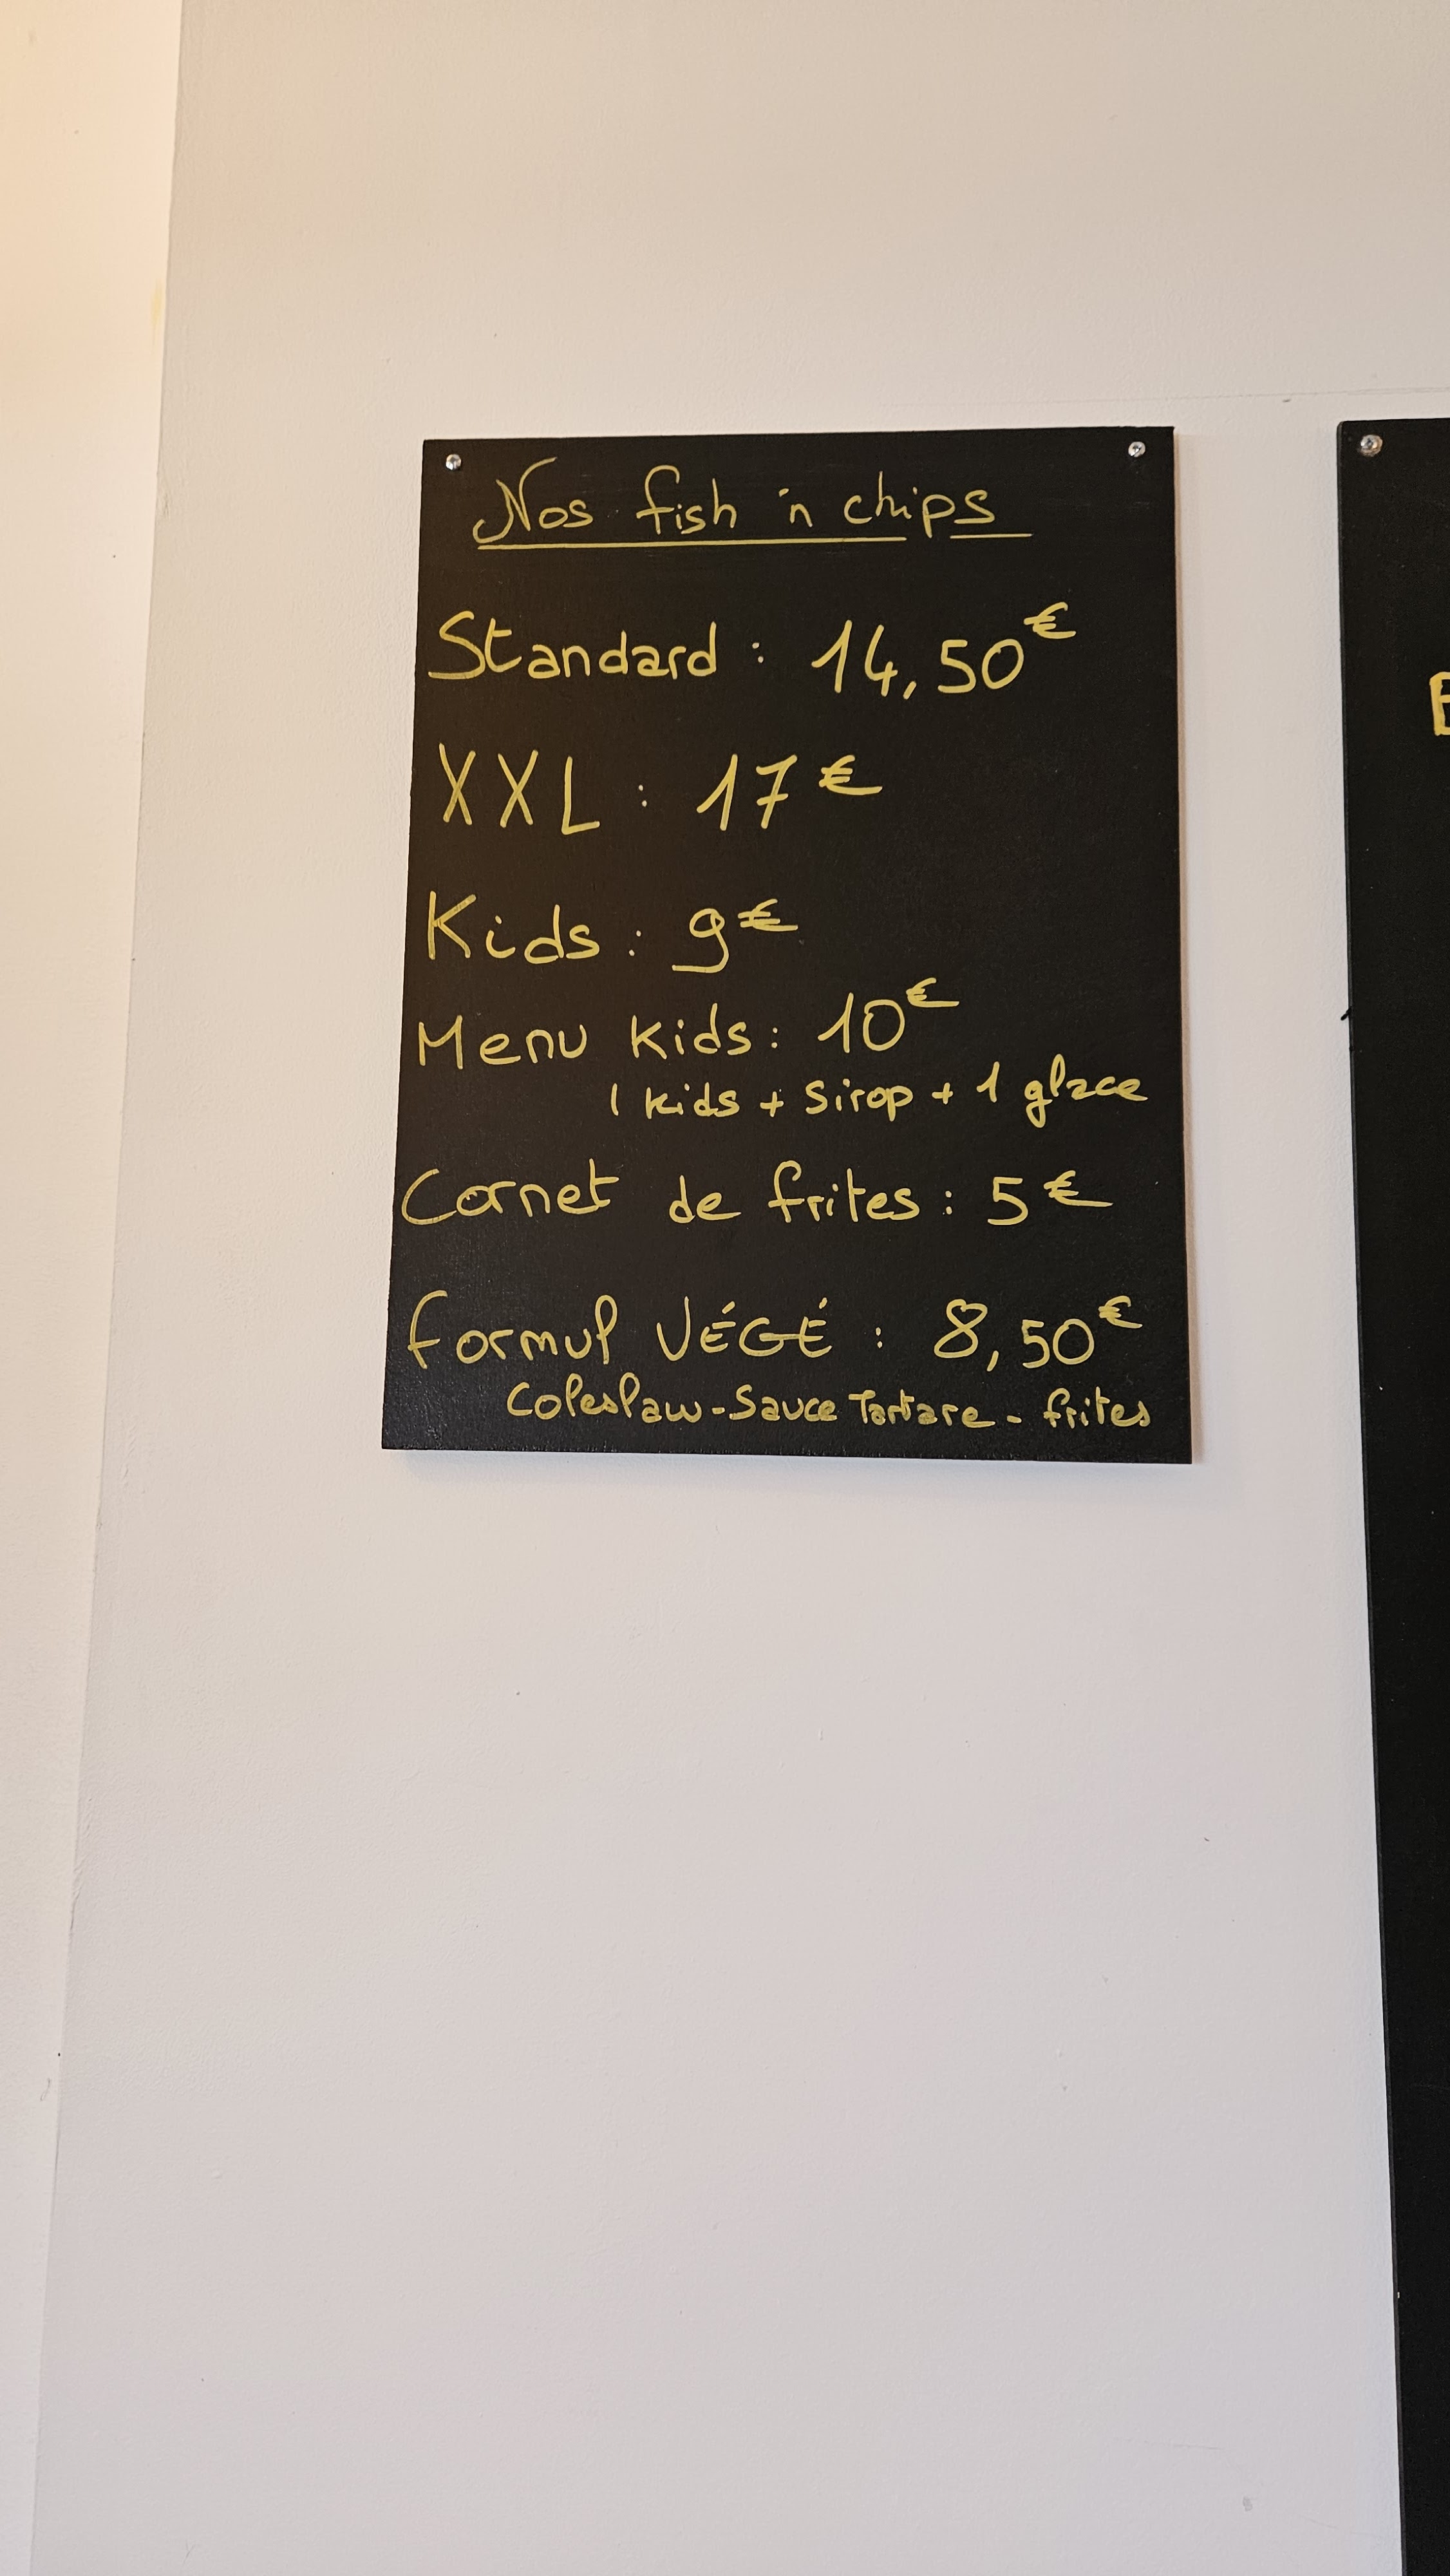 Nos fish 'n chips
Standard : 14,50€
XXL : 17€
Kids : 9€
Menu kids : 10€
1 kids + Sirop + 1 glace
Cornet de frites : 5€
formul VÉGÉ : 8,50€
Coleslaw - Sauce Tartare - frites